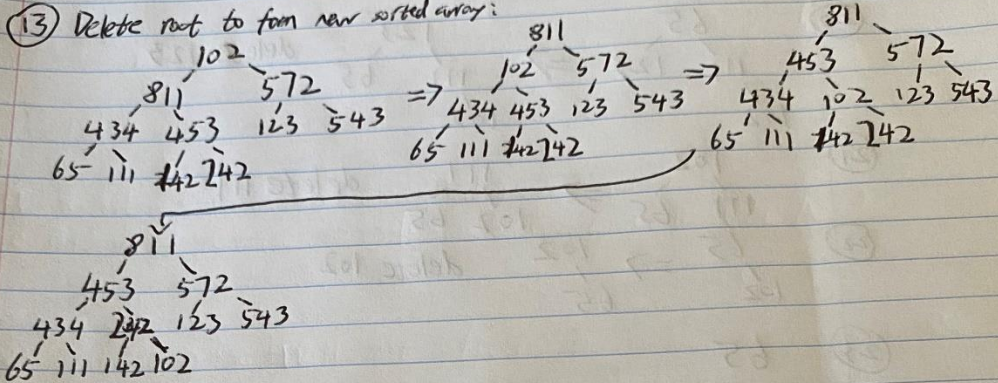 (13) Delete root to form new sorted array:
102
811 572
434 453 123 543
65 111 142 242
=>
811
102 572
434 453 123 543
65 111 142 242
=>
811
453 572
434 102 123 543
65 111 142 242
811
453 572
434 242 123 543
65 111 142 102